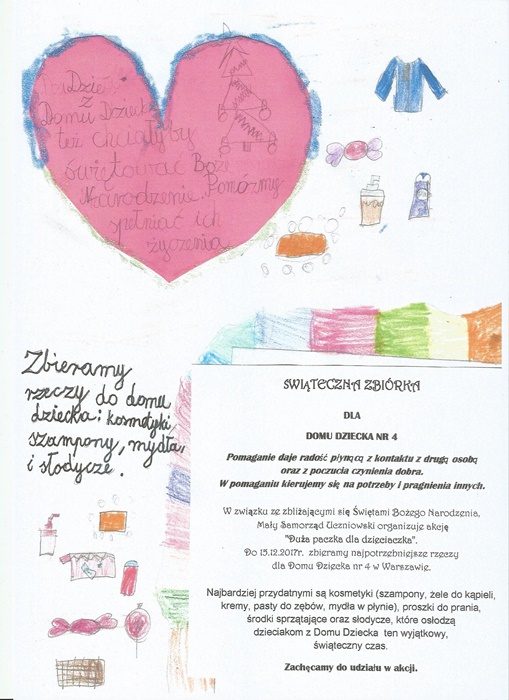 Dzieci
z
Domu Dziecka
też chciałyby
świętować Boże
Narodzenie. Pomóżmy
spełniać ich
życzenia
Zbieramy
rzeczy do domu
dziecka: kosmetyki,
szampony, mydła,
i słodycze.
ŚWIĄTECZNA ZBIÓRKA
DLA
DOMU DZIECKA NR 4
Pomaganie daje radość płynącą z kontaktu z drugą osobą
oraz z poczucia czynienia dobra.
W pomaganiu kierujemy się na potrzeby i pragnienia innych.
W związku ze zbliżającymi się Świętami Bożego Narodzenia,
Mały Samorząd Uczniowski organizuje akcję
"Duża paczka dla dzieciaczka".
Do 15.12.2017r. zbieramy najpotrzebniejsze rzeczy
dla Domu Dziecka nr 4 w Warszawie.
Najbardziej przydatnymi są kosmetyki (szampony, żele do kąpieli,
kremy, pasty do zębów, mydła w płynie), proszki do prania,
środki sprzątające oraz słodycze, które osłodzą
dzieciakom z Domu Dziecka ten wyjątkowy,
świąteczny czas.
Zachęcamy do udziału w akcji.